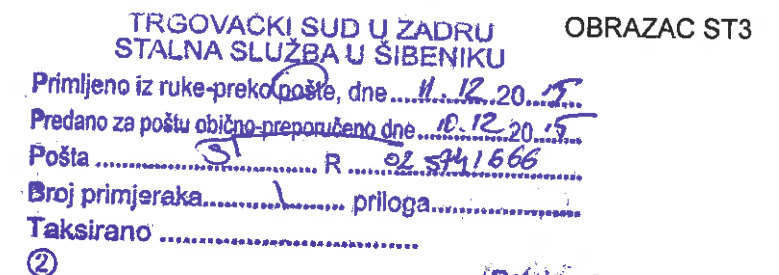 TRGOVAČKI SUD U ZADRU
STALNA SLUŽBA U ŠIBENIKU
OBRAZAC ST3
Primljeno iz ruke-preko pošte, dne....11.12.20.15.
Predano za poštu obično-preporučeno dne....10.12.20.15
Pošta .................. R ...02 5741666
Broj primjeraka......1...... priloga..................
Taksirano ..................
2